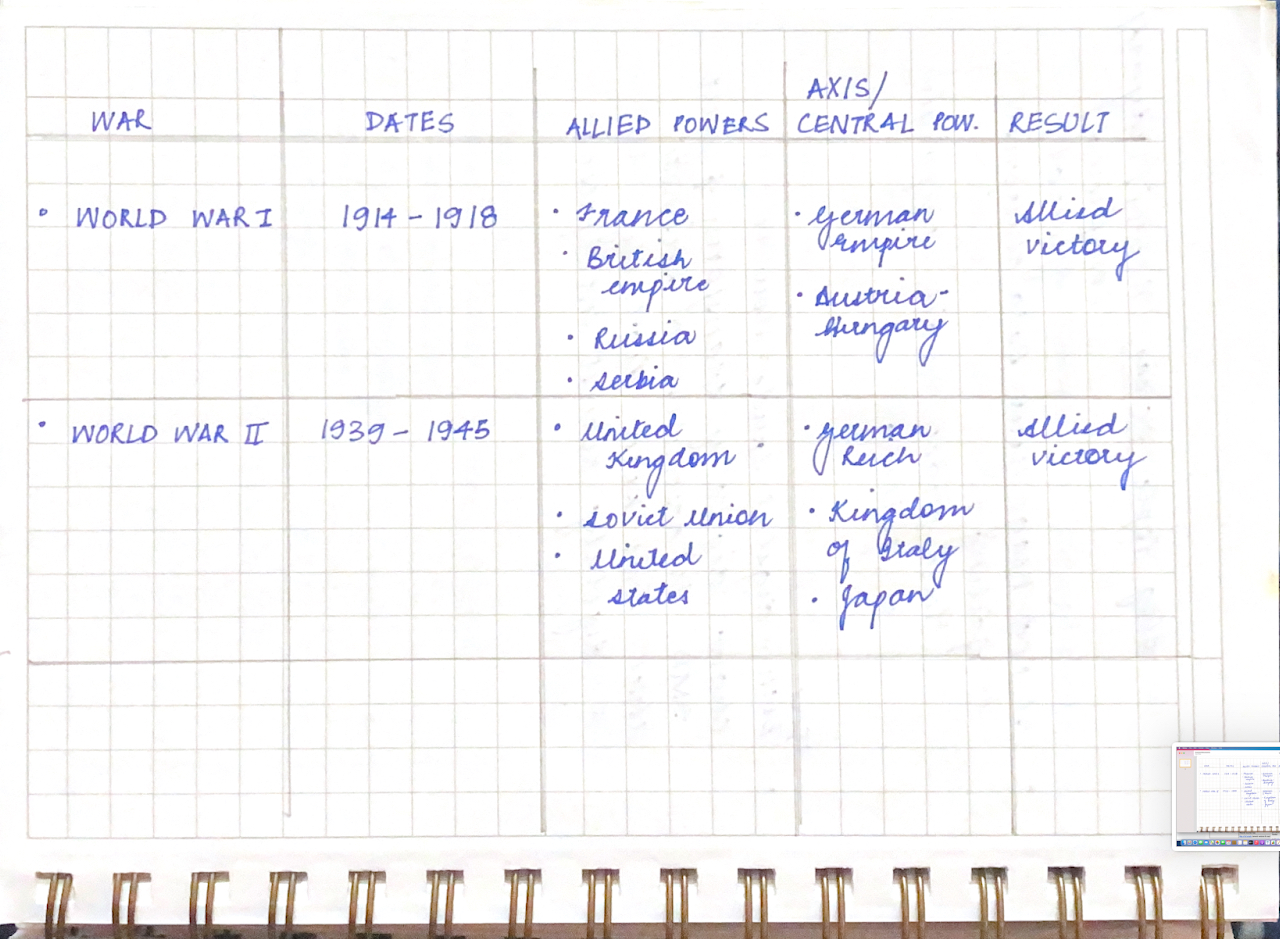 AXIS/
WAR DATES ALLIED POWERS CENTRAL POW. RESULT
• WORLD WAR I 1914 - 1918 • France • German Allied
empire victory
• British
empire
• Austria-
Hungary
• Russia
• Serbia
• WORLD WAR II 1939 - 1945 • United • German Allied
Kingdom Reich victory
• Soviet Union • Kingdom
of Italy
• United
states • Japan